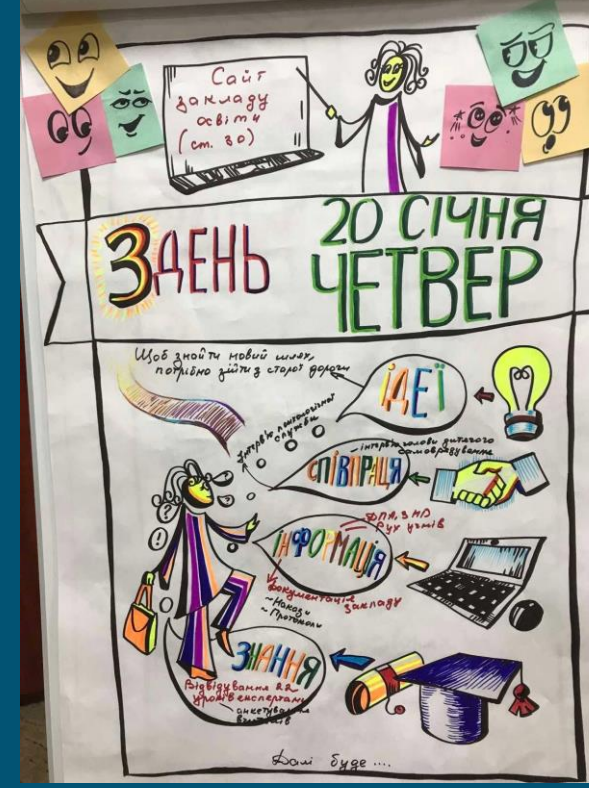 Сайт
закладу
освіти
(ст. 30)
3 ДЕНЬ
20 СІЧНЯ
ЧЕТВЕР
Щоб знайти новий шлях,
потрібно зійти з старої дороги
ІДЕЇ
Інтерв'ю психологічної
служби
- інтерв'ю голови дитячого
самоврядування
СПІВПРАЦЯ
ДПА, ЗНО
Рух учнів
ІНФОРМАЦІЯ
Документація
закладу
~ Накази
~ Протоколи
ЗНАННЯ
Відвідування 22
уроків експертами
анкетування
Далі буде ....